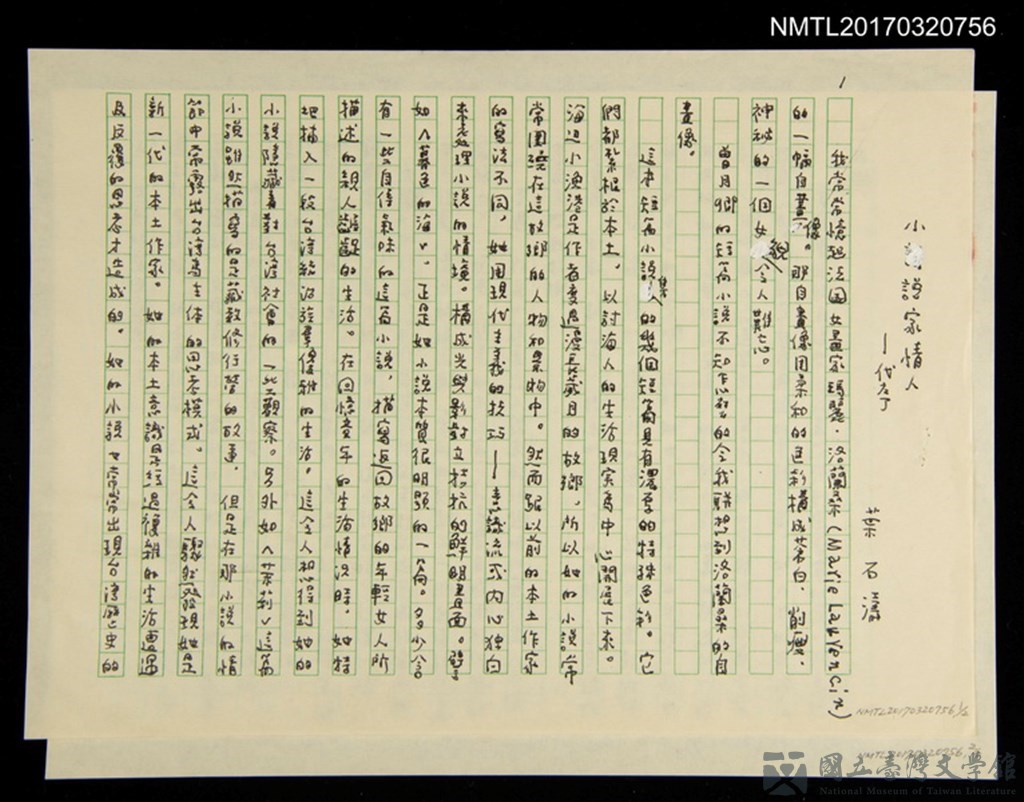 NMTL20170320756
1
小說家情人
—代序
葉石濤
我常常憶起法国女畫家瑪麗.洛蘭珊(Marie Lauvencin)
的一幅自畫像。那自畫像用柔和的色彩構成茉白,削瘦,
神秘的一個女貌,令人難忘。
曾月卿的短篇小說不知怎麼的令我聯想到洛蘭珊的自
畫像。
這本短篇小說集的幾個短篇具有濃厚的特殊色彩。它
們都紮根於本土,以討海人的生活現実為中心開展下來。
海辺小漁港是作者度過漫長歲月的故鄉,所以她的小說常
常圍繞在這故鄉的人物和景物中。然而跟以前的本土作家
的寫法不同,她用現代主義的技巧—意識流或内心独白
來處理小說的情境。構成光與影對立拮抗的鮮明畫面。譬
如〈暮色的海〉,正是她小說本質很明顯的一篇。多少含
有一些自傳氣味的這篇小說,描寫返回故鄉的年輕女人所
描述的親人齷齪的生活。在回憶童年的生活情況時,她特
地插入一段台湾統治族羣優雅的生活。這令人想得到她的
小說隱藏着對台湾社會的一些觀察。另外如〈茉莉〉這篇
小說雖然描寫的是藏教修行營的故事,但是在那小說的情
節中常露出台湾為主体的思考模式。這令人驟然發現她是
新一代的本土作家。她的本土意識是経過複雜的生活遭遇
及反覆的思考才造成的。她的小說也常常出現台湾歷史的
NMTL20170320756 1/2
NMTL20170320756 2
國立臺灣文學館
National Museum of Taiwan Literature